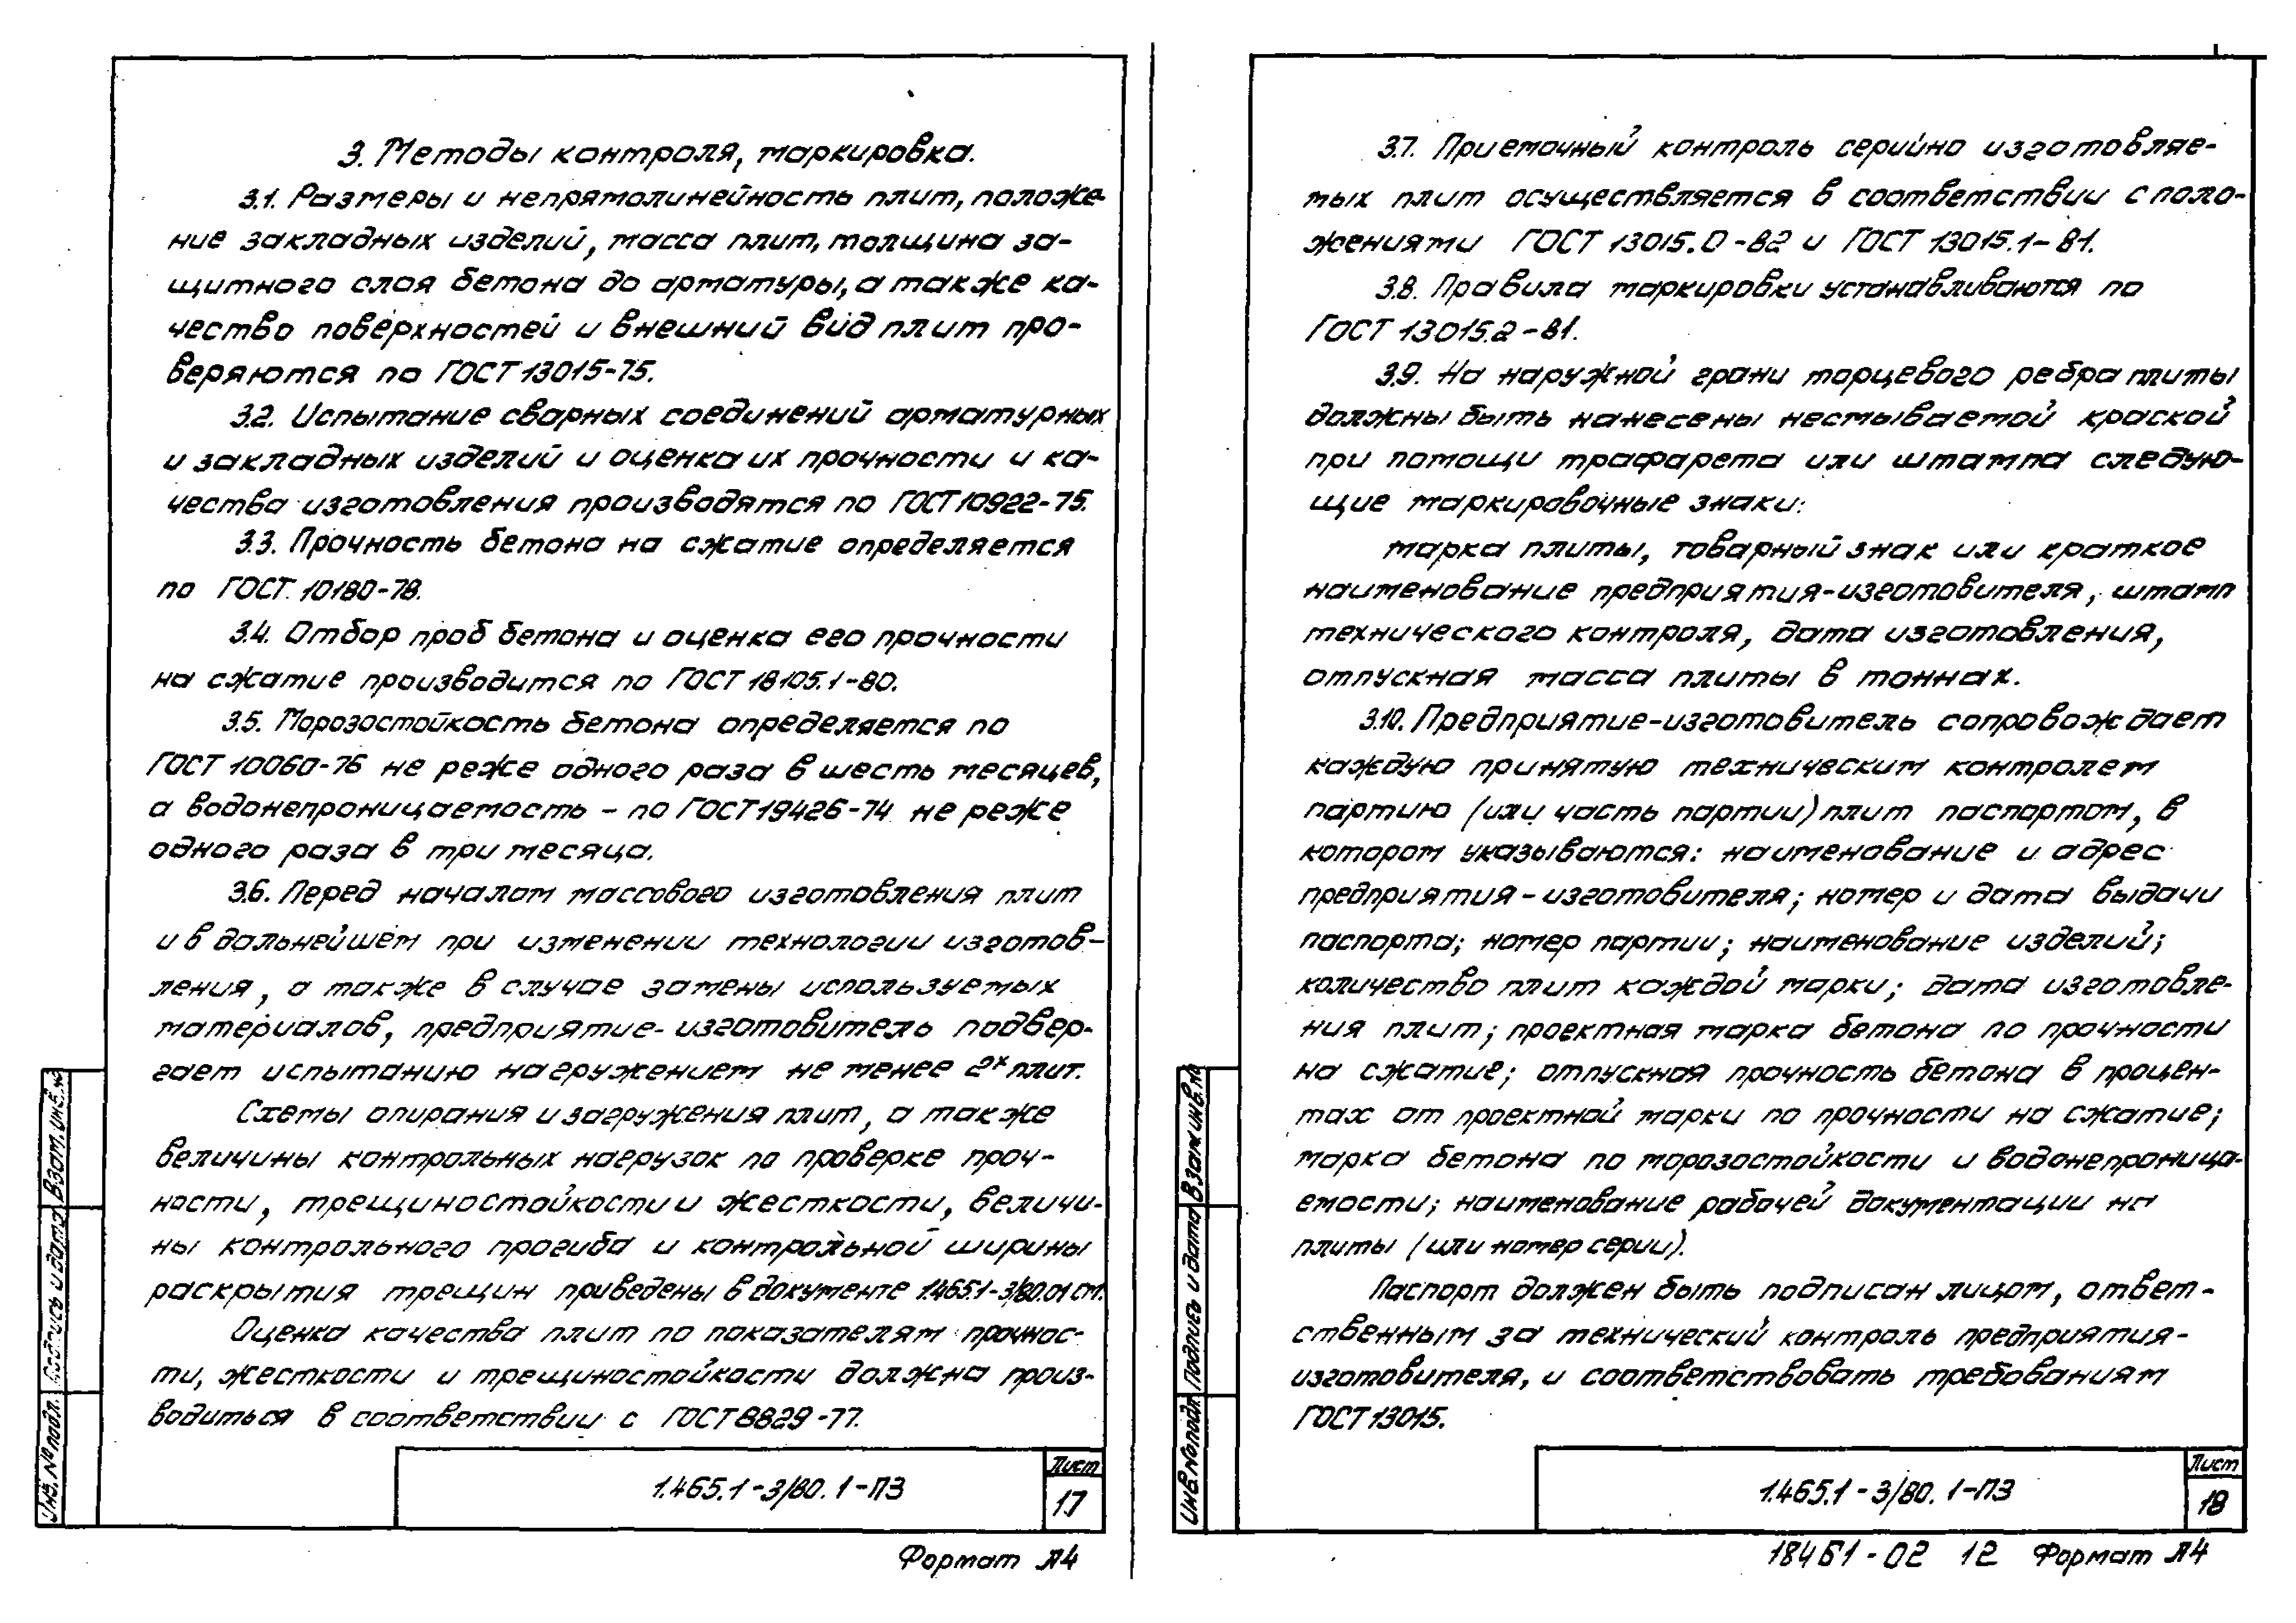 3. Методы контроля, маркировка.
3.1. Размеры и непрямолинейность плит, положе-
ние закладных изделий, масса плит, толщина за-
щитного слоя бетона до арматуры, а также ка-
чество поверхностей и внешний вид плит про-
веряются по ГОСТ 13015-75.
3.2. Испытание сварных соединений арматурных
и закладных изделий и оценка их прочности и ка-
чества изготовления производятся по ГОСТ 10922-75.
3.3. Прочность бетона на сжатие определяется
по ГОСТ 10180-78.
3.4. Отбор проб бетона и оценка его прочности
на сжатие производится по ГОСТ 18105.1-80.
3.5. Морозостойкость бетона определяется по
ГОСТ 10060-76 не реже одного раза в шесть месяцев,
а водонепроницаемость - по ГОСТ 19426-74 не реже
одного раза в три месяца.
3.6. Перед началом массового изготовления плит
и в дальнейшем при изменении технологии изготов-
ления, а также в случае замены используемых
материалов, предприятие-изготовитель подвер-
гает испытанию нагружением не менее 2х плит.
Схемы опирания и загружения плит, а также
величины контрольных нагрузок по проверке проч-
ности, трещиностойкости и жесткости, величи-
ны контрольного прогиба и контрольной ширины
раскрытия трещин приведены в документе 1.465.1-3/80.01 СМ.
Оценка качества плит по показателям прочнос-
ти, жесткости и трещиностойкости должна произ-
водиться в соответствии с ГОСТ 8829-77.
Взам. инв. №
Подпись и дата
Инв. № подл.
1.465.1-3/80. 1-ПЗ
Лист
17
Формат А4
3.7. Приемочный контроль серийно изготовляе-
мых плит осуществляется в соответствии с поло-
жениями ГОСТ 13015.0-82 и ГОСТ 13015.1-81.
3.8. Правила маркировки устанавливаются по
ГОСТ 13015.2-81.
3.9. На наружной грани торцевого ребра плиты
должны быть нанесены несмываемой краской
при помощи трафарета или штампа следую-
щие маркировочные знаки:
марка плиты, товарный знак или краткое
наименование предприятия-изготовителя, штамп
технического контроля, дата изготовления,
отпускная масса плиты в тоннах.
3.10. Предприятие-изготовитель сопровождает
каждую принятую техническим контролем
партию (или часть партии) плит паспортом, в
котором указываются: наименование и адрес
предприятия-изготовителя; номер и дата выдачи
паспорта; номер партии; наименование изделий;
количество плит каждой марки; дата изготовле-
ния плит; проектная марка бетона по прочности
на сжатие; отпускная прочность бетона в процен-
тах от проектной марки по прочности на сжатие;
марка бетона по морозостойкости и водонепроница-
емости; наименование рабочей документации на
плиты (или номер серии).
Паспорт должен быть подписан лицом, ответ-
ственным за технический контроль предприятия-
изготовителя, и соответствовать требованиям
ГОСТ 13015.
Взам инв. №
Подпись и дата
Инв. № подл.
1.465.1-3/80. 1-ПЗ
Лист
18
18461-02 12 Формат А4